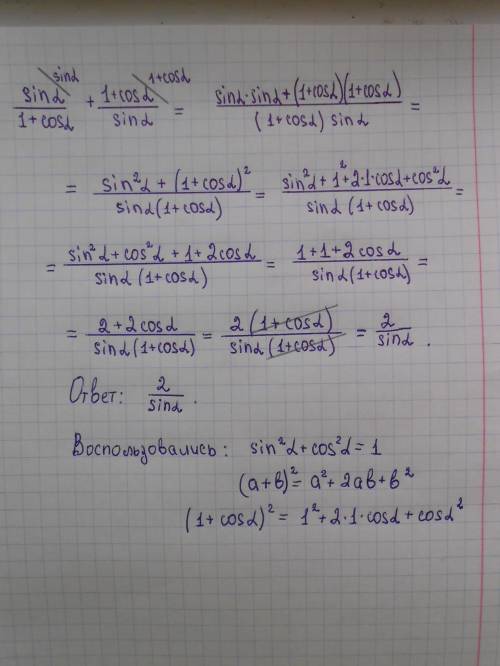 sinα/(1+cosα) ^sinα + (1+cosα)/sinα ^1+cosα = (sinα·sinα+(1+cosα)(1+cosα))/((1+cosα) sinα) =
= (sin²α + (1+cosα)²)/(sinα(1+cosα)) = (sin²α + 1² + 2·1·cosα + cos²α)/(sinα (1+cosα)) =
= (sin²α + cos²α + 1 + 2cosα)/(sinα (1+cosα)) = (1+1+2cosα)/(sinα(1+cosα)) =
= (2+2cosα)/(sinα(1+cosα)) = (2(1+cosα))/(sinα(1+cosα)) = 2/sinα .
Ответ: 2/sinα .
Воспользовались: sin²α + cos²α = 1
(а+в)² = а² + 2ав + в²
(1+cosα)² = 1² + 2·1·cosα + cosα²